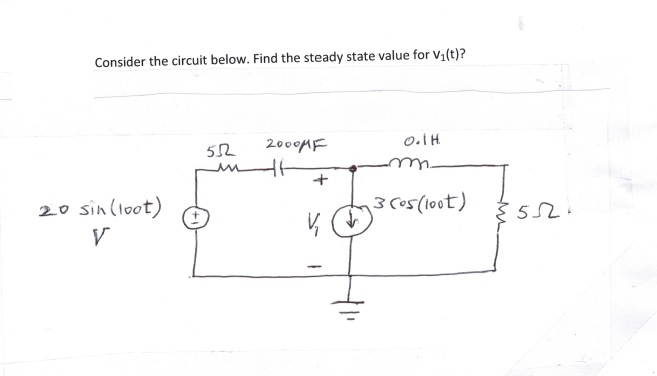 Consider the circuit below. Find the steady state value for V₁(t)?
5Ω 2000μF 0.1H
+
20 sin(100t) 3 cos(100t) 5Ω
V + - V₁
-